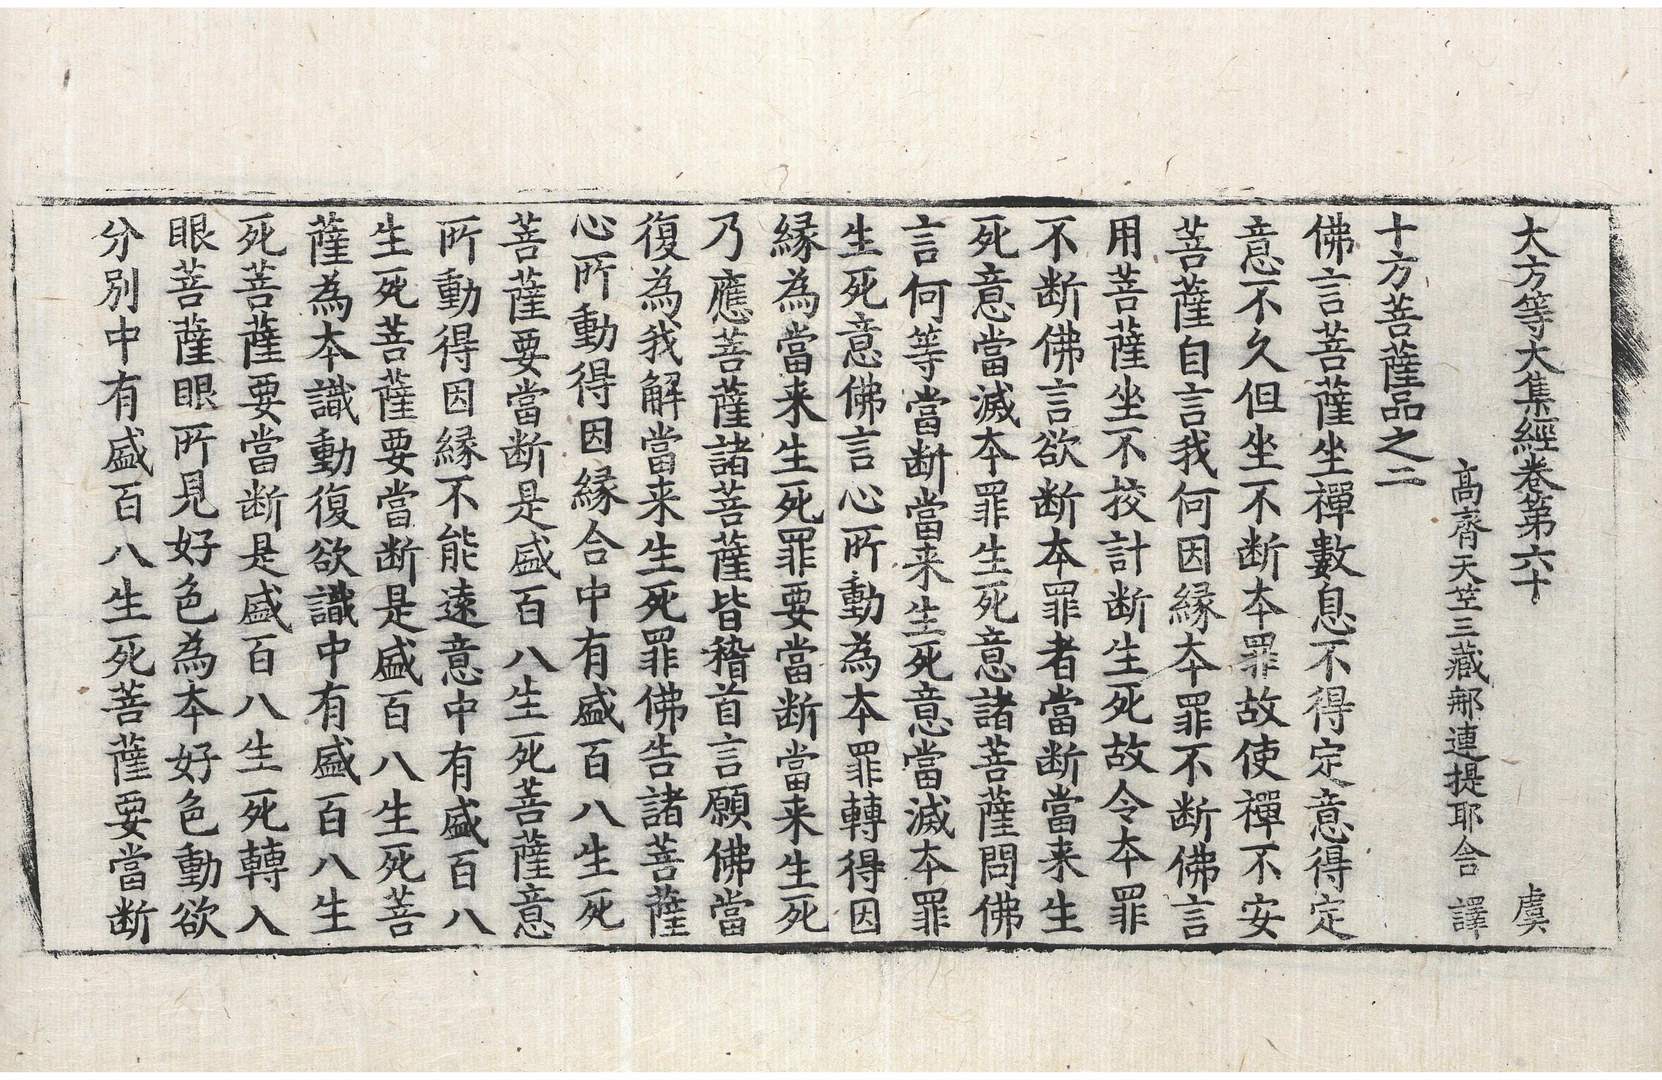 大方等大集經卷第六十 虞
高齊天竺三藏郍連提耶舍 譯
十方菩薩品之二
佛言菩薩坐禪數息不得定意得定
意不久但坐不断本罪故使禪不安
菩薩自言我何因縁本罪不断佛言
用菩薩坐不挍計断生死故令本罪
不断佛言欲断本罪者當断當来生
死意當滅本罪生死意諸菩薩問佛
言何等當断當来生死意當滅本罪
生死意佛言心所動為本罪轉得因
縁為當来生死罪要當断當来生死
乃應菩薩諸菩薩皆稽首言願佛當
復為我解當来生死罪佛告諸菩薩
心所動得因縁合中有盛百八生死
菩薩要當断是盛百八生死菩薩意
所動得因縁不能遠意中有盛百八
生死菩薩要當断是盛百八生死菩
薩為本識動復欲識中有盛百八生
死菩薩要當断是盛百八生死轉入
眼菩薩眼所見好色為本好色動欲
分别中有盛百八生死菩薩要當断